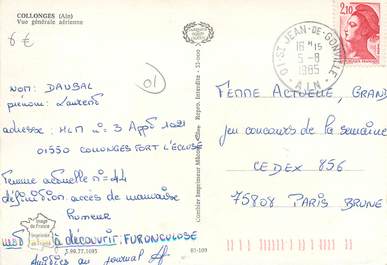 COLLONGES (Ain)
Vue générale aérienne
6 €
01
NOM: DAUBAL
prénom: Laurent
adresse: HLM n° 3 Appt 1021
01550 COLLONGES FORT L'ÉCLUSE
Femme actuelle n° 44
définition: accès de mauvaise
humeur
mot à découvrir: FURONCULOSE
du journal Af
Image
de France
3.99.77.1085
01-109
Combier Imprimeur Mâcon
Repro. interdite - 57-000
2,10
01 ST JEAN-DE-GONVILLE
16 H 15
5-8
1985
AIN
FEMME ACTUELLE, GRAND
jeu concours de la semaine
CEDEX 856
75808 PARIS BRUNE